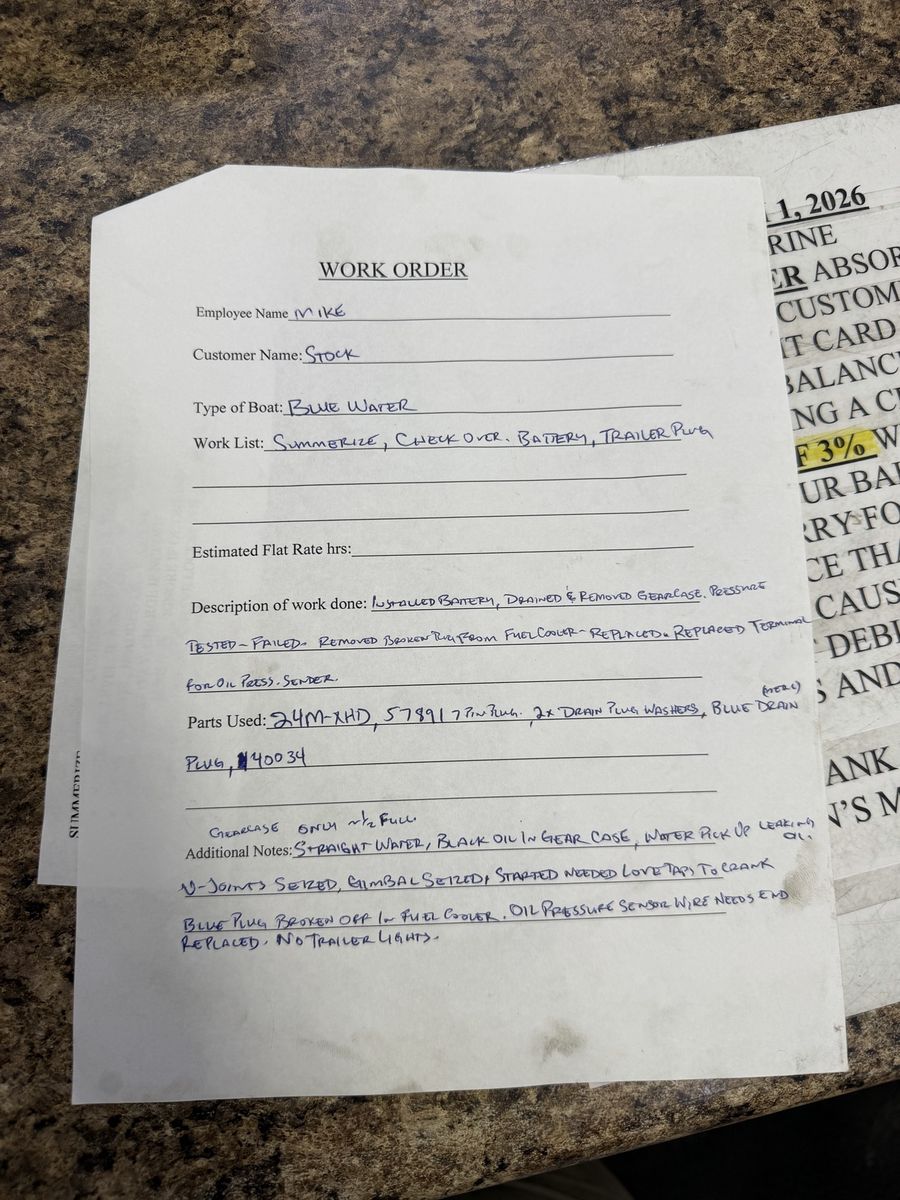 WORK ORDER
Employee Name MIKE
Customer Name: STOCK
Type of Boat: BLUE WATER
Work List: SUMMERIZE, CHECK OVER. BATTERY, TRAILER PLUG
Estimated Flat Rate hrs:
Description of work done: INSTALLED BATTERY, DRAINED & REMOVED GEARCASE. PRESSURE
TESTED - FAILED. REMOVED BROKEN PLUG FROM FUEL COOLER - REPLACED. REPLACED TERMINAL
FOR OIL PRESS. SENDER.
(MERC)
Parts Used: 24M-XHD, 57891 7 PIN PLUG. 2x DRAIN PLUG WASHERS, BLUE DRAIN
PLUG, 140034
GEARCASE ONLY ~1/2 FULL
Additional Notes: STRAIGHT WATER, BLACK OIL IN GEAR CASE, WATER PICK UP LEAKING
OIL.
U-JOINTS SEIZED, GIMBAL SEIZED, STARTED NEEDED LOVE TAPS TO CRANK
BLUE PLUG BROKEN OFF IN FUEL COOLER. OIL PRESSURE SENSOR WIRE NEEDS END
REPLACED. NO TRAILER LIGHTS.
1, 2026
RINE
ER ABSOR
CUSTOM
IT CARD
BALANC
NG A C
F 3% W
UR BA
RRY FO
CE THA
CAUS
DEBI
S AND
ANK
N'S M
SUMMERIZE